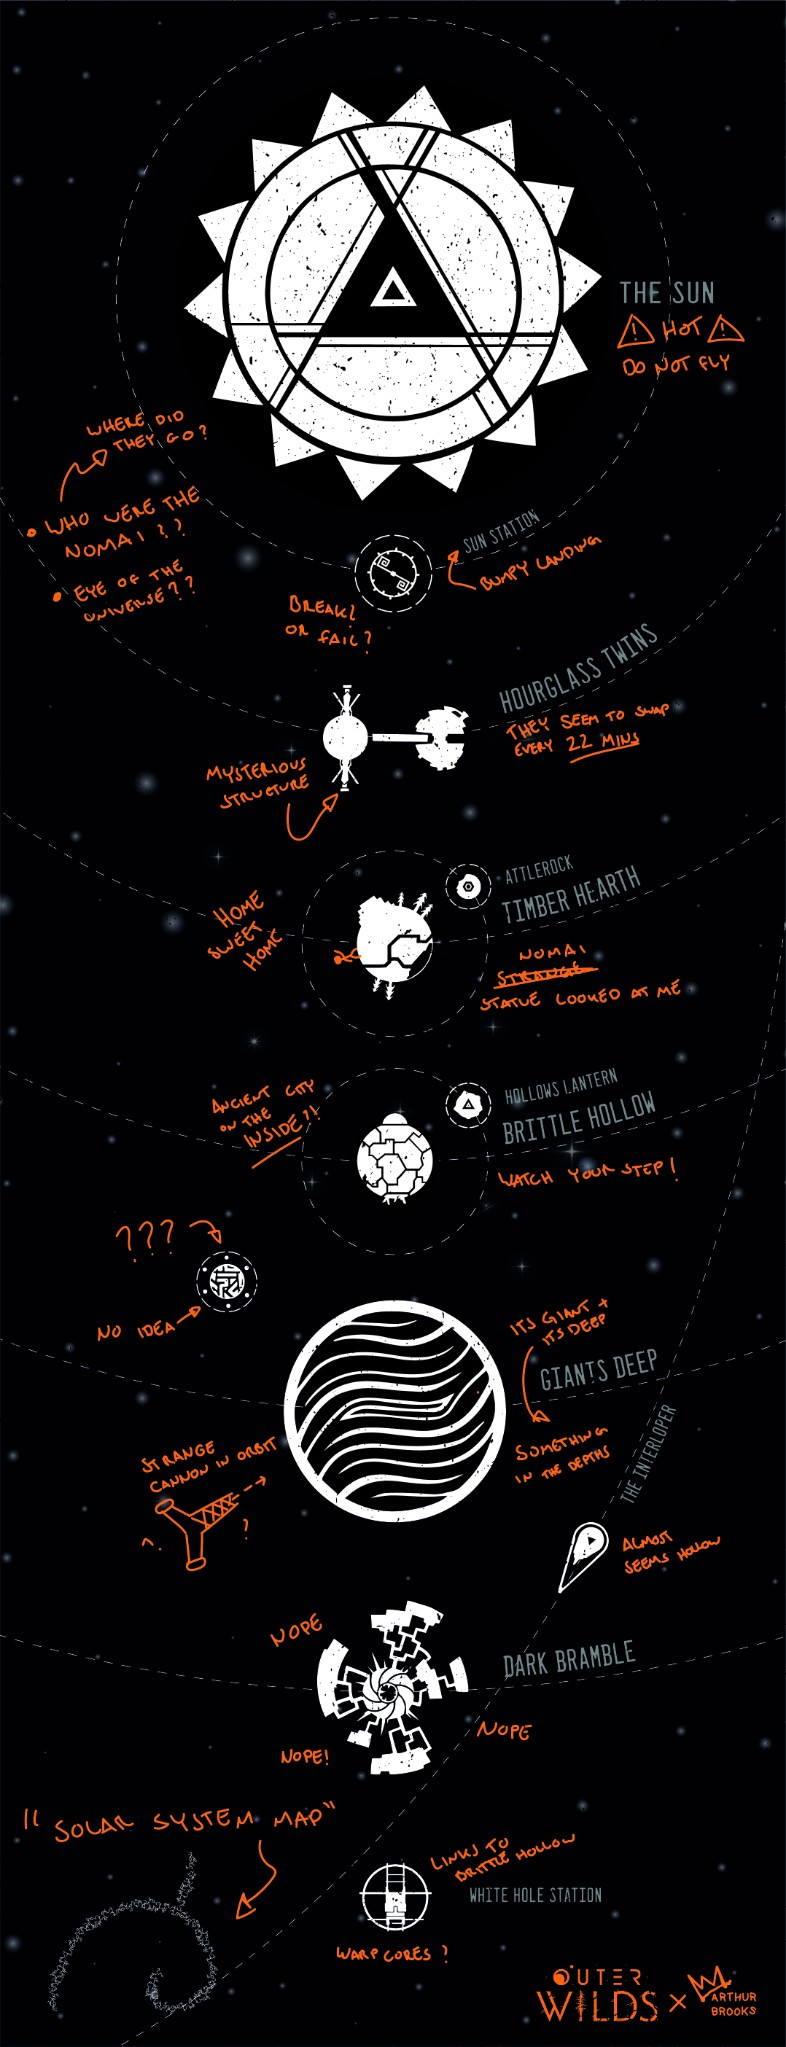 THE SUN
HOT
DO NOT FLY
WHERE DID
THEY GO?
• WHO WERE THE
NOMAI ??
• EYE OF THE
UNIVERSE??
SUN STATION
BUMPY LANDING
BREAK?
OR FAIL?
HOURGLASS TWINS
THEY SEEM TO SWAP
EVERY 22 MINS
MYSTERIOUS
STRUCTURE
ATTLEROCK
TIMBER HEARTH
HOME
SWEET
HOME
NOMAI
STRANGE
STATUE LOOKED AT ME
HOLLOWS LANTERN
BRITTLE HOLLOW
ANCIENT CITY
ON THE
INSIDE?!
WATCH YOUR STEP!
???
NO IDEA
ITS GIANT +
ITS DEEP
GIANTS DEEP
SOMETHING
IN THE DEPTHS
STRANGE
CANNON IN ORBIT
? ?
THE INTERLOPER
ALMOST
SEEMS HOLLOW
NOPE
DARK BRAMBLE
NOPE
NOPE!
"SOLAR SYSTEM MAP"
LINKS TO
BRITTLE HOLLOW
WHITE HOLE STATION
WARP CORES ?
OUTER
WILDS × ARTHUR
BROOKS